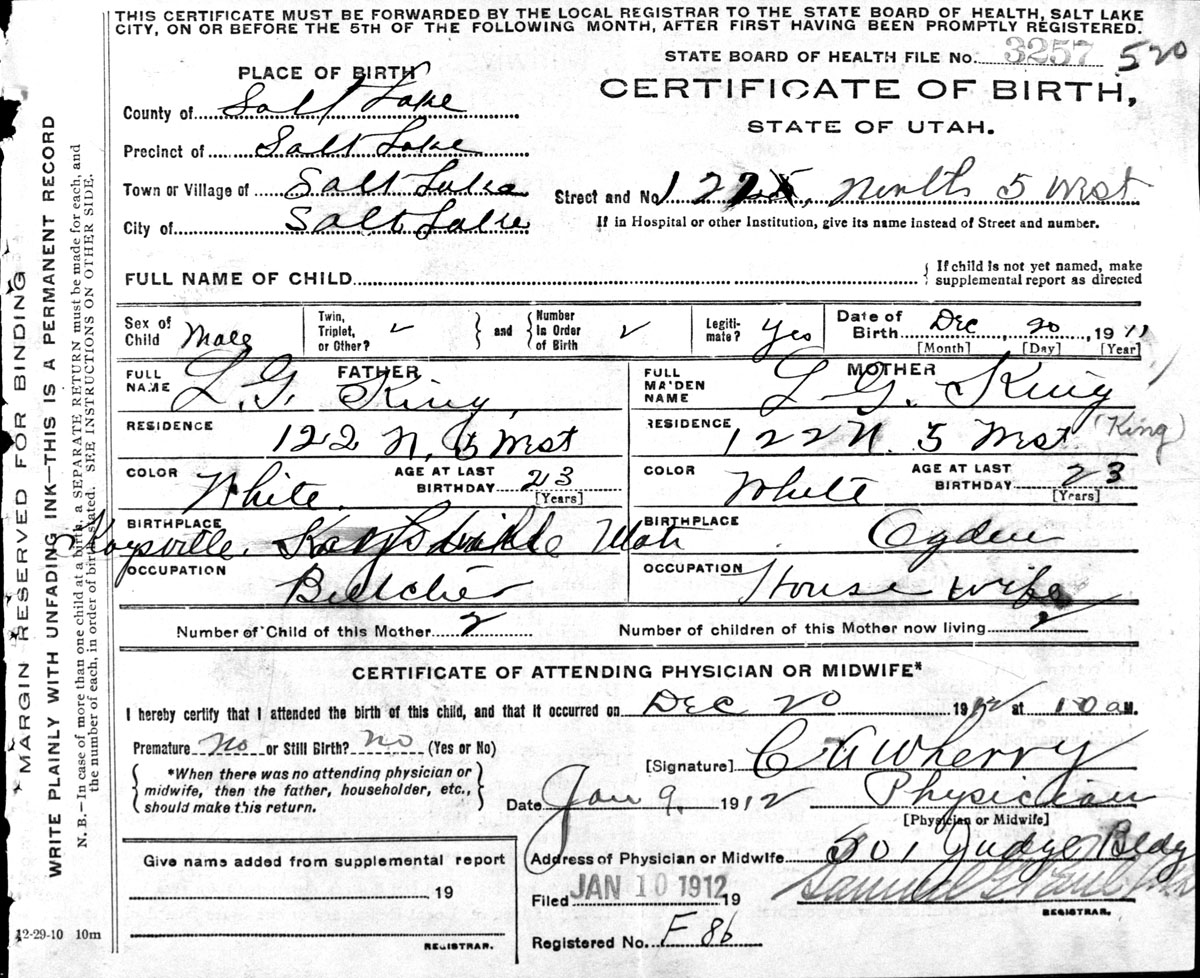 THIS CERTIFICATE MUST BE FORWARDED BY THE LOCAL REGISTRAR TO THE STATE BOARD OF HEALTH, SALT LAKE
CITY, ON OR BEFORE THE 5TH OF THE FOLLOWING MONTH, AFTER FIRST HAVING BEEN PROMPTLY REGISTERED.
STATE BOARD OF HEALTH FILE No. 3257 520
PLACE OF BIRTH
CERTIFICATE OF BIRTH,
STATE OF UTAH.
County of Salt Lake
Precinct of Salt Lake
Town or Village of Salt Lake
City of Salt Lake
Street and No. 122 North 5 West
If in Hospital or other Institution, give its name instead of Street and number.
FULL NAME OF CHILD
If child is not yet named, make
supplemental report as directed
Sex of Child Male
Twin, Triplet, or Other? ✓
and
Number In Order of Birth ✓
Legiti- mate? Yes
Date of Birth Dec, 20 1911
[Month] [Day] [Year]
FATHER
FULL NAME L. G. King,
RESIDENCE 122 N. 5 West
COLOR White.
AGE AT LAST BIRTHDAY 23
[Years]
BIRTHPLACE Kaysville. Utah
OCCUPATION Butcher
MOTHER
FULL MAIDEN NAME L. G. King
(King)
RESIDENCE 122 N. 5 West
COLOR White
AGE AT LAST BIRTHDAY 23
[Years]
BIRTHPLACE Ogden
OCCUPATION House wife
Number of Child of this Mother 2
Number of children of this Mother now living 2
CERTIFICATE OF ATTENDING PHYSICIAN OR MIDWIFE*
I hereby certify that I attended the birth of this child, and that it occurred on Dec 20 19 at 10 a M.
Premature No or Still Birth? No (Yes or No)
*When there was no attending physician or
midwife, then the father, householder, etc.,
should make this return.
[Signature] C A Wherry
Date Jan 9. 1912 Physician
[Physician or Midwife]
Give name added from supplemental report
19
REGISTRAR.
Address of Physician or Midwife 501 Judge Bldg
Filed JAN 10 1912 19
Samuel G. Paul
REGISTRAR.
Registered No. F 86
12-29-10 10m
MARGIN RESERVED FOR BINDING
WRITE PLAINLY WITH UNFADING INK—THIS IS A PERMANENT RECORD
N. B.—In case of more than one child at a birth, a SEPARATE RETURN must be made for each, and
the number of each, in order of birth, stated. SEE INSTRUCTIONS ON OTHER SIDE.